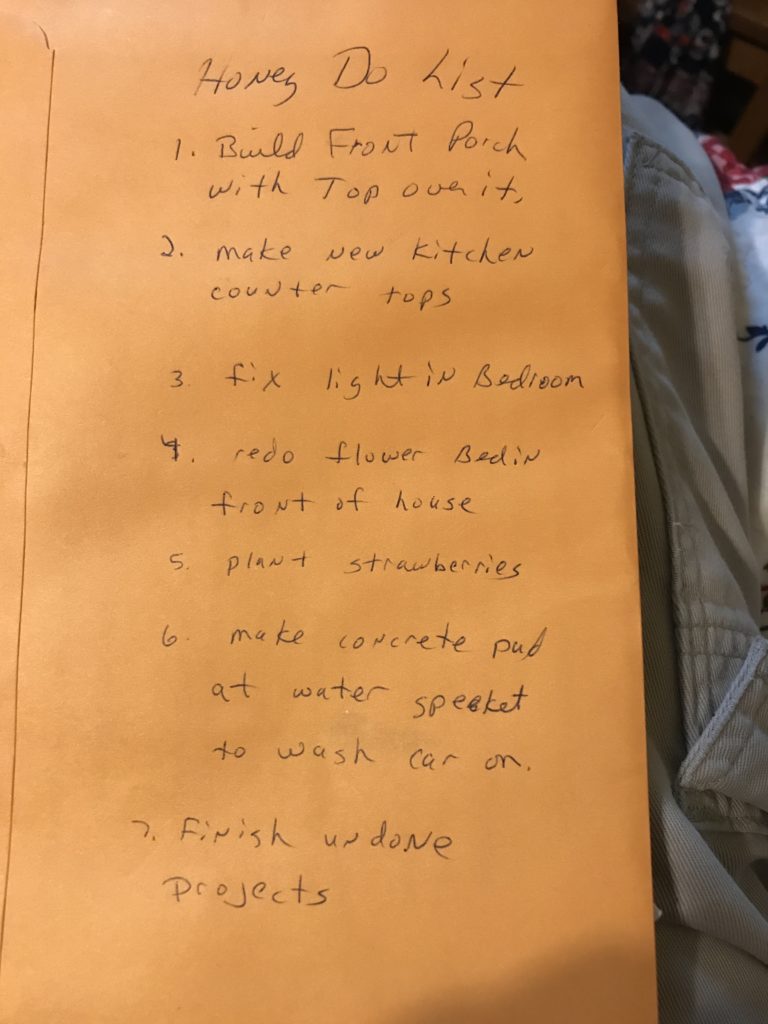 Honey Do List
1. Build Front Porch
with Top over it,
2. make new kitchen
counter tops
3. fix light in Bedroom
4. redo flower Bed in
front of house
5. plant strawberries
6. make concrete pad
at water specket
to wash car on.
7. Finish undone
projects